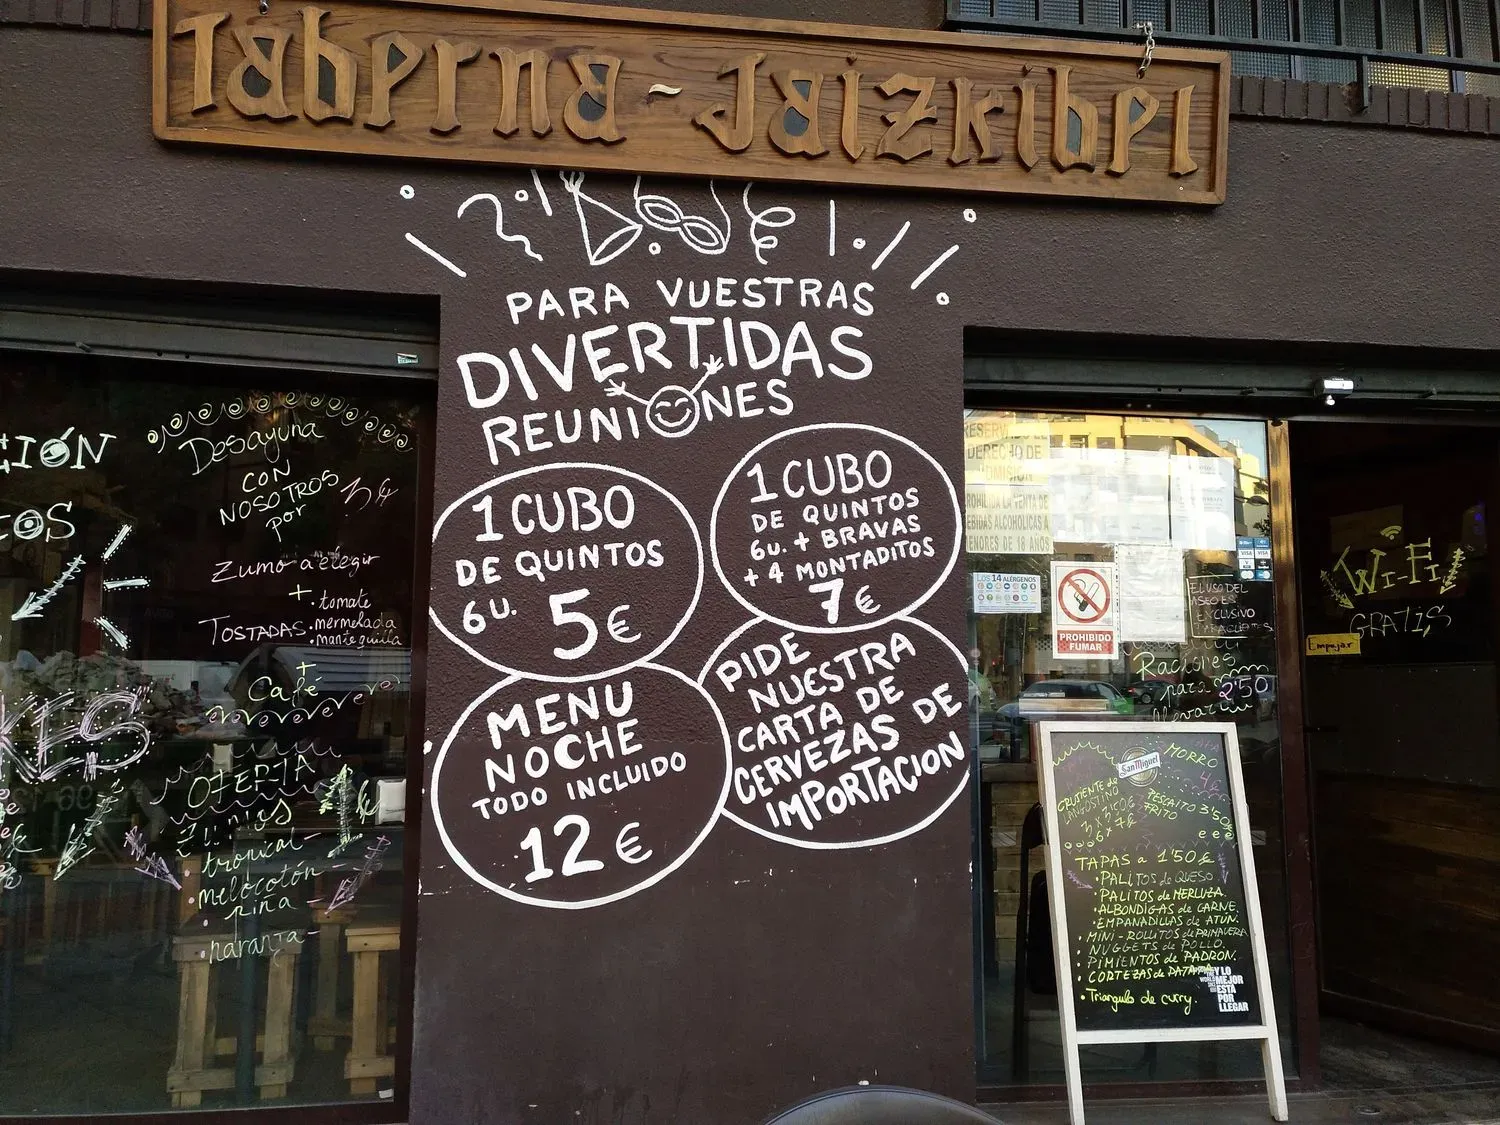 Taberna - Jaizkibel
PARA VUESTRAS
DIVERTIDAS
REUNIONES
1 CUBO
DE QUINTOS
6U. 5€
1 CUBO
DE QUINTOS
6U. + BRAVAS
+ 4 MONTADITOS
7€
MENU
NOCHE
TODO INCLUIDO
12€
PIDE
NUESTRA
CARTA DE
CERVEZAS DE
IMPORTACION
CIÓN
Desayuna
CON
NOSOTROS
por
Zumo a elegir
+
TOSTADAS
• tomate
• mermelada
• mantequilla
+
Café
OFERTA
Zumos
• tropical
• melocotón
• piña
• naranja
DERECHO DE
ADMISION
LOS 14 ALÉRGENOS
PROHIBIDO
FUMAR
VISA
EL USO DEL
ASEO ES
EXCLUSIVO
Raciones
para
llevar
2'50
WI-FI
GRATIS
Empujar
San Miguel
MORRO
4€
CRUJIENTE de
LANGOSTINO
PESCAITO 3'50€
FRITO
TAPAS a 1'50 €
• PALITOS de QUESO
• PALITOS de MERLUZA.
• ALBONDIGAS de CARNE
• EMPANADILLAS de ATÚN.
• MINI-ROLLITOS de PRIMAVERA
• NUGGETS de POLLO.
• PIMIENTOS de PADRON.
• CORTEZAS de PATATA
• Triangulo de curry.
Y LO
MEJOR
ESTÁ
POR
LLEGAR